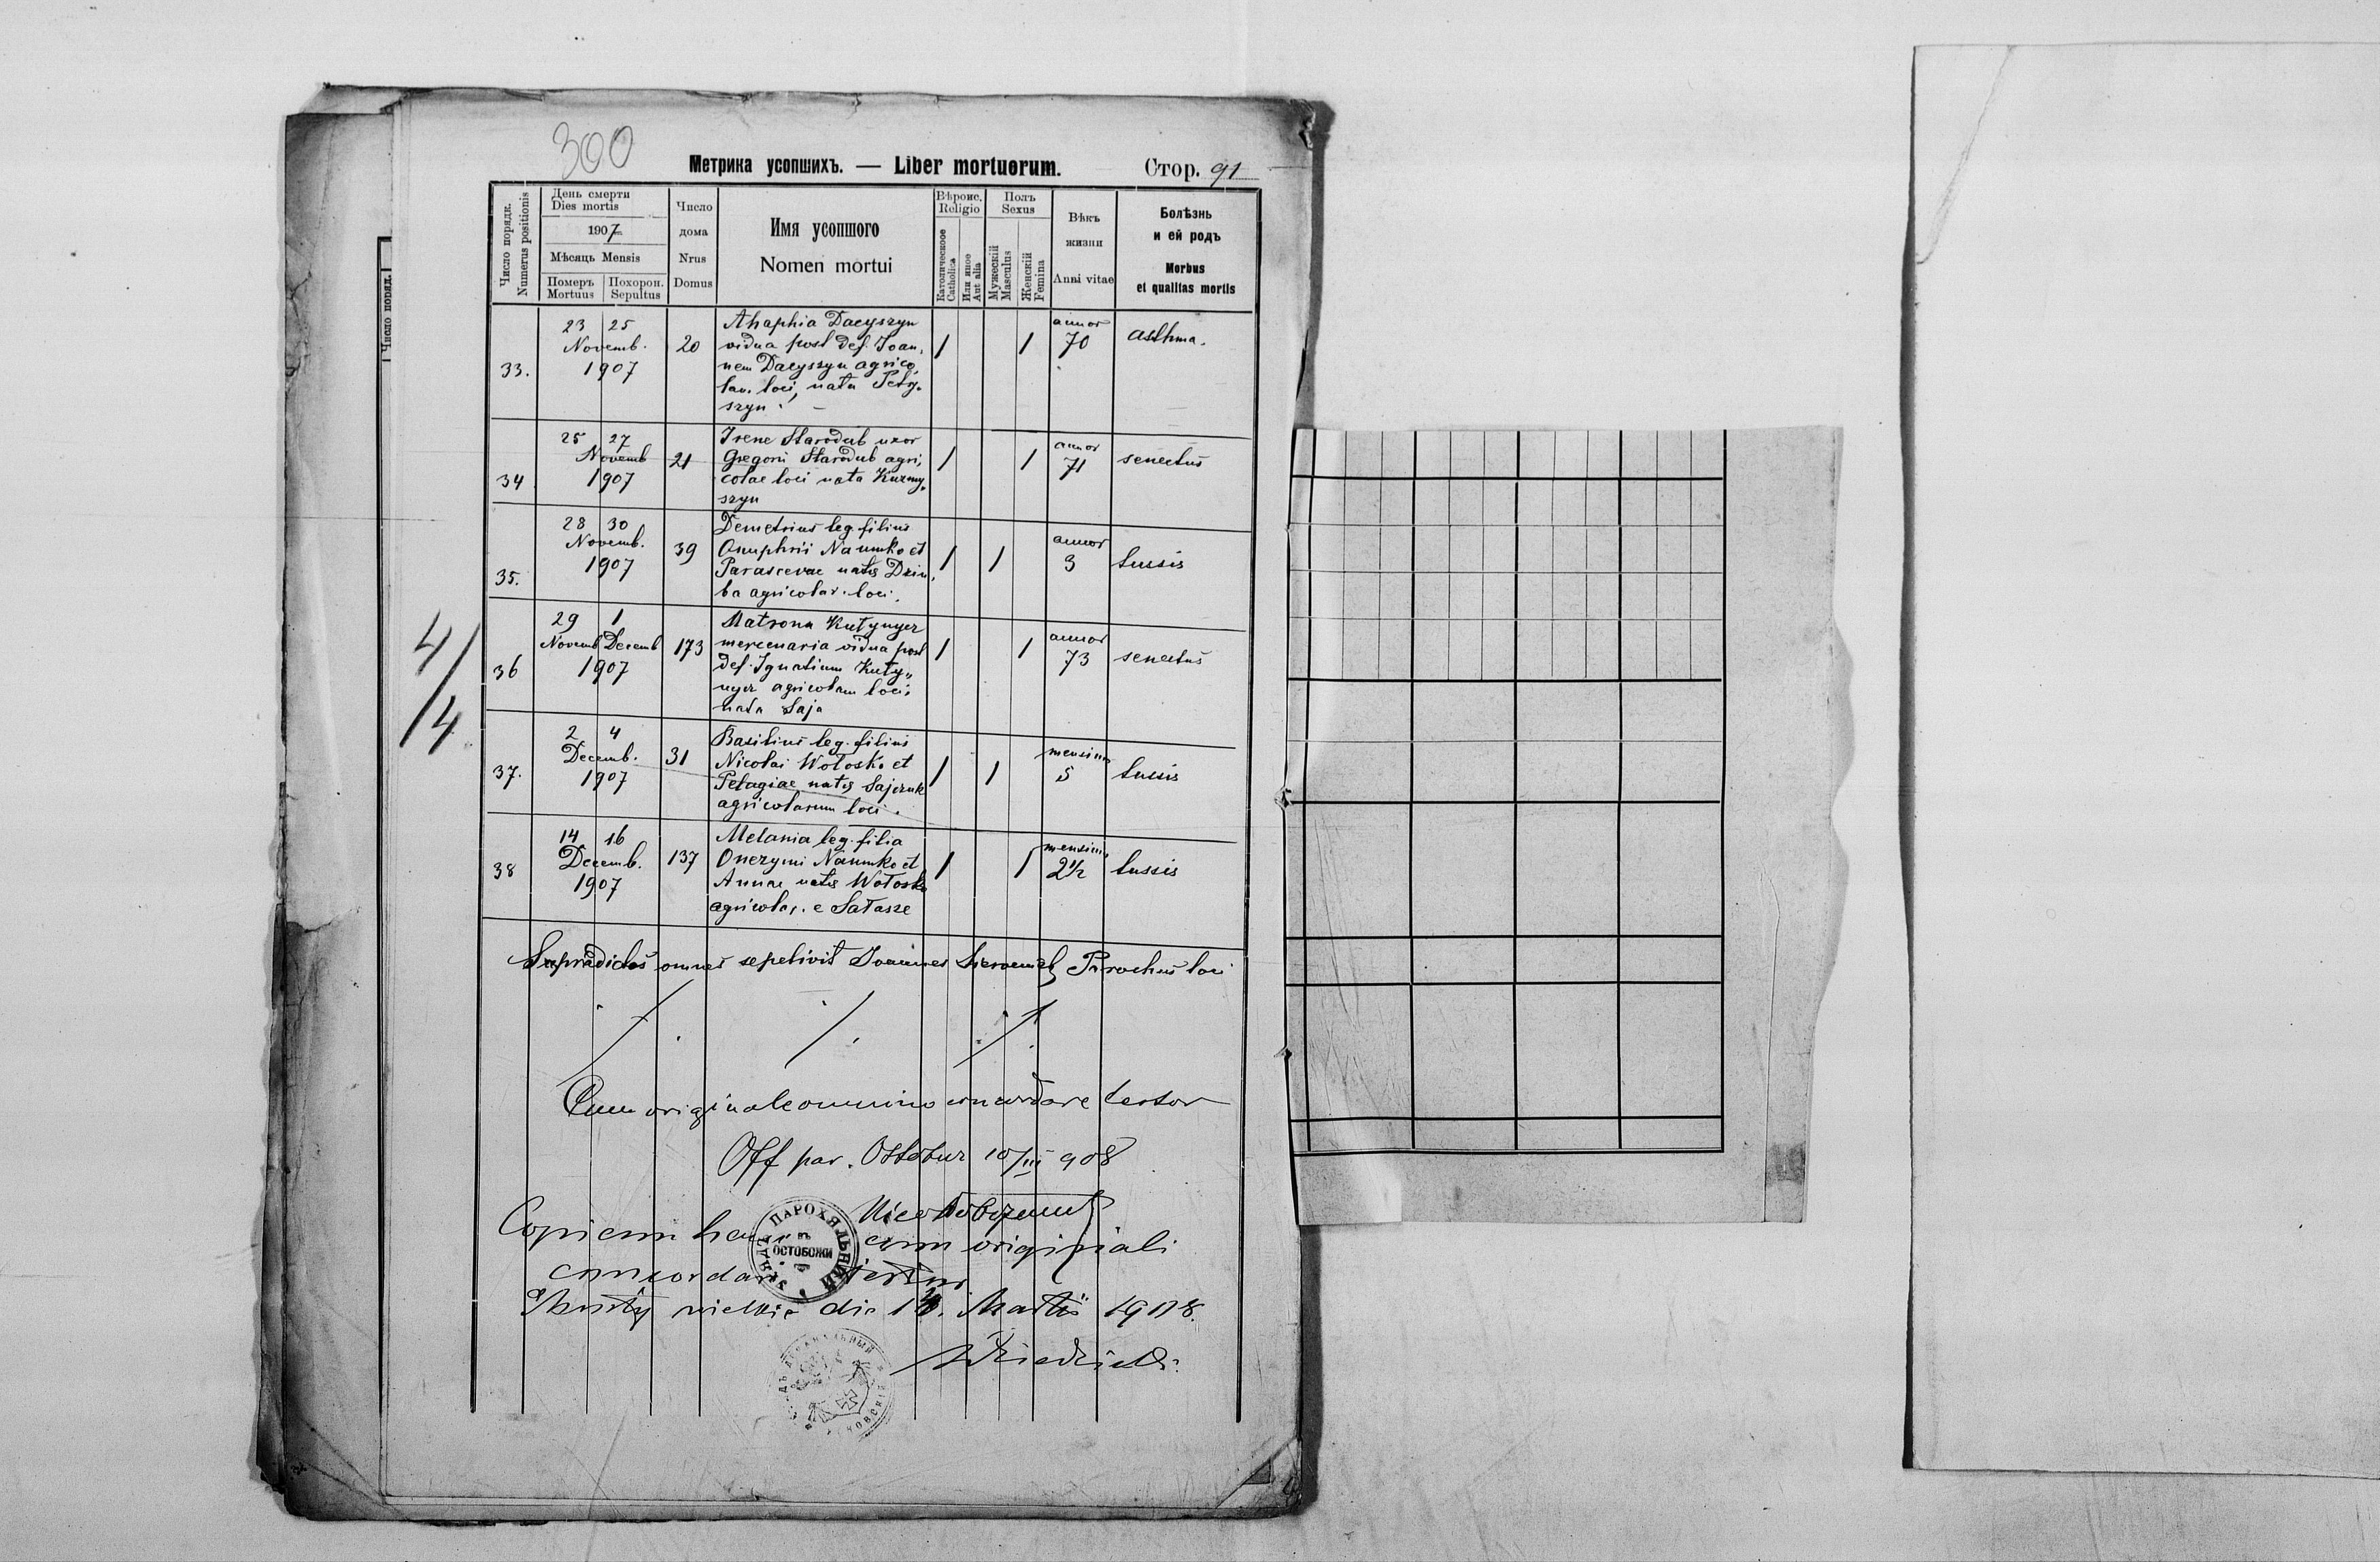 300
Метрика усопшихъ. — Liber mortuorum.
Стор. 91
Число порядк.
Numerus positionis
День смерти
Dies mortis
1907
Мѣсяць Mensis
Померъ
Mortuus
Похорон.
Sepultus
Число
дома
Nrus
Domus
Имя усопшого
Nomen mortui
Вѣроис.
Religio
Католическоое
Catholica
Или иное
Aut alia
Полъ
Sexus
Мужескій
Masculus
Женскій
Femina
Вѣкъ
жизни
Anni vitae
Болѣзнь
и ей родъ
Morbus
et qualitas mortis
Число поряд.
33.
23 25
Novemb.
1907
20
Ahaphia Dacyszyn
vidua post def. Joan,
nem Dacyszyn agrico,
lam loci, nata Pety,
szyn.
1
1
annor
70
asthma.
34
25 27
Novemb
1907
21
Irene Starodub uxor
Gregorii Starodub agri,
colae loci nata Kuzmy,
szyn
1
1
annor
71
senectus
35.
28 30
Novemb.
1907
39
Demetrius leg. filius
Onuphrii Naumko et
Parascevae natis Dziu,
ba agricolar. loci.
1
1
annor
3
tussis
36
29 1
Novemb Decemb
1907
173
Matrona Kutynyez
mercenaria vidua post
def. Ignatium Kuty,,
nyez agricolam loci,
nata Saja
1
1
annor
73
senectus
4/
/4
37.
2 4
Decemb.
1907
31
Basilius leg. filius
Nicolai Wołosko et
Pelagiae natis Sajczuk
agricolarum loci.
1
1
mensium
5
tussis
38
14 16
Decemb.
1907
137
Melania leg. filia
Onezymi Naumko et
Annae natis Wołosko
agricolar. e Sałasze
1
1
mensium
2 1/2
tussis
Supradictos omnes sepelivit Joannes Parochus loci
Cum originale omnino concordare testor
Off par. Ostobuz 10/III 908
Copiam hanc cum originali
concordare testor
wielkie die Martii 1908.
ПАРОХЯЛЬНЫЙ
УРЯДЪ
въ
ОСТОБОЖИ